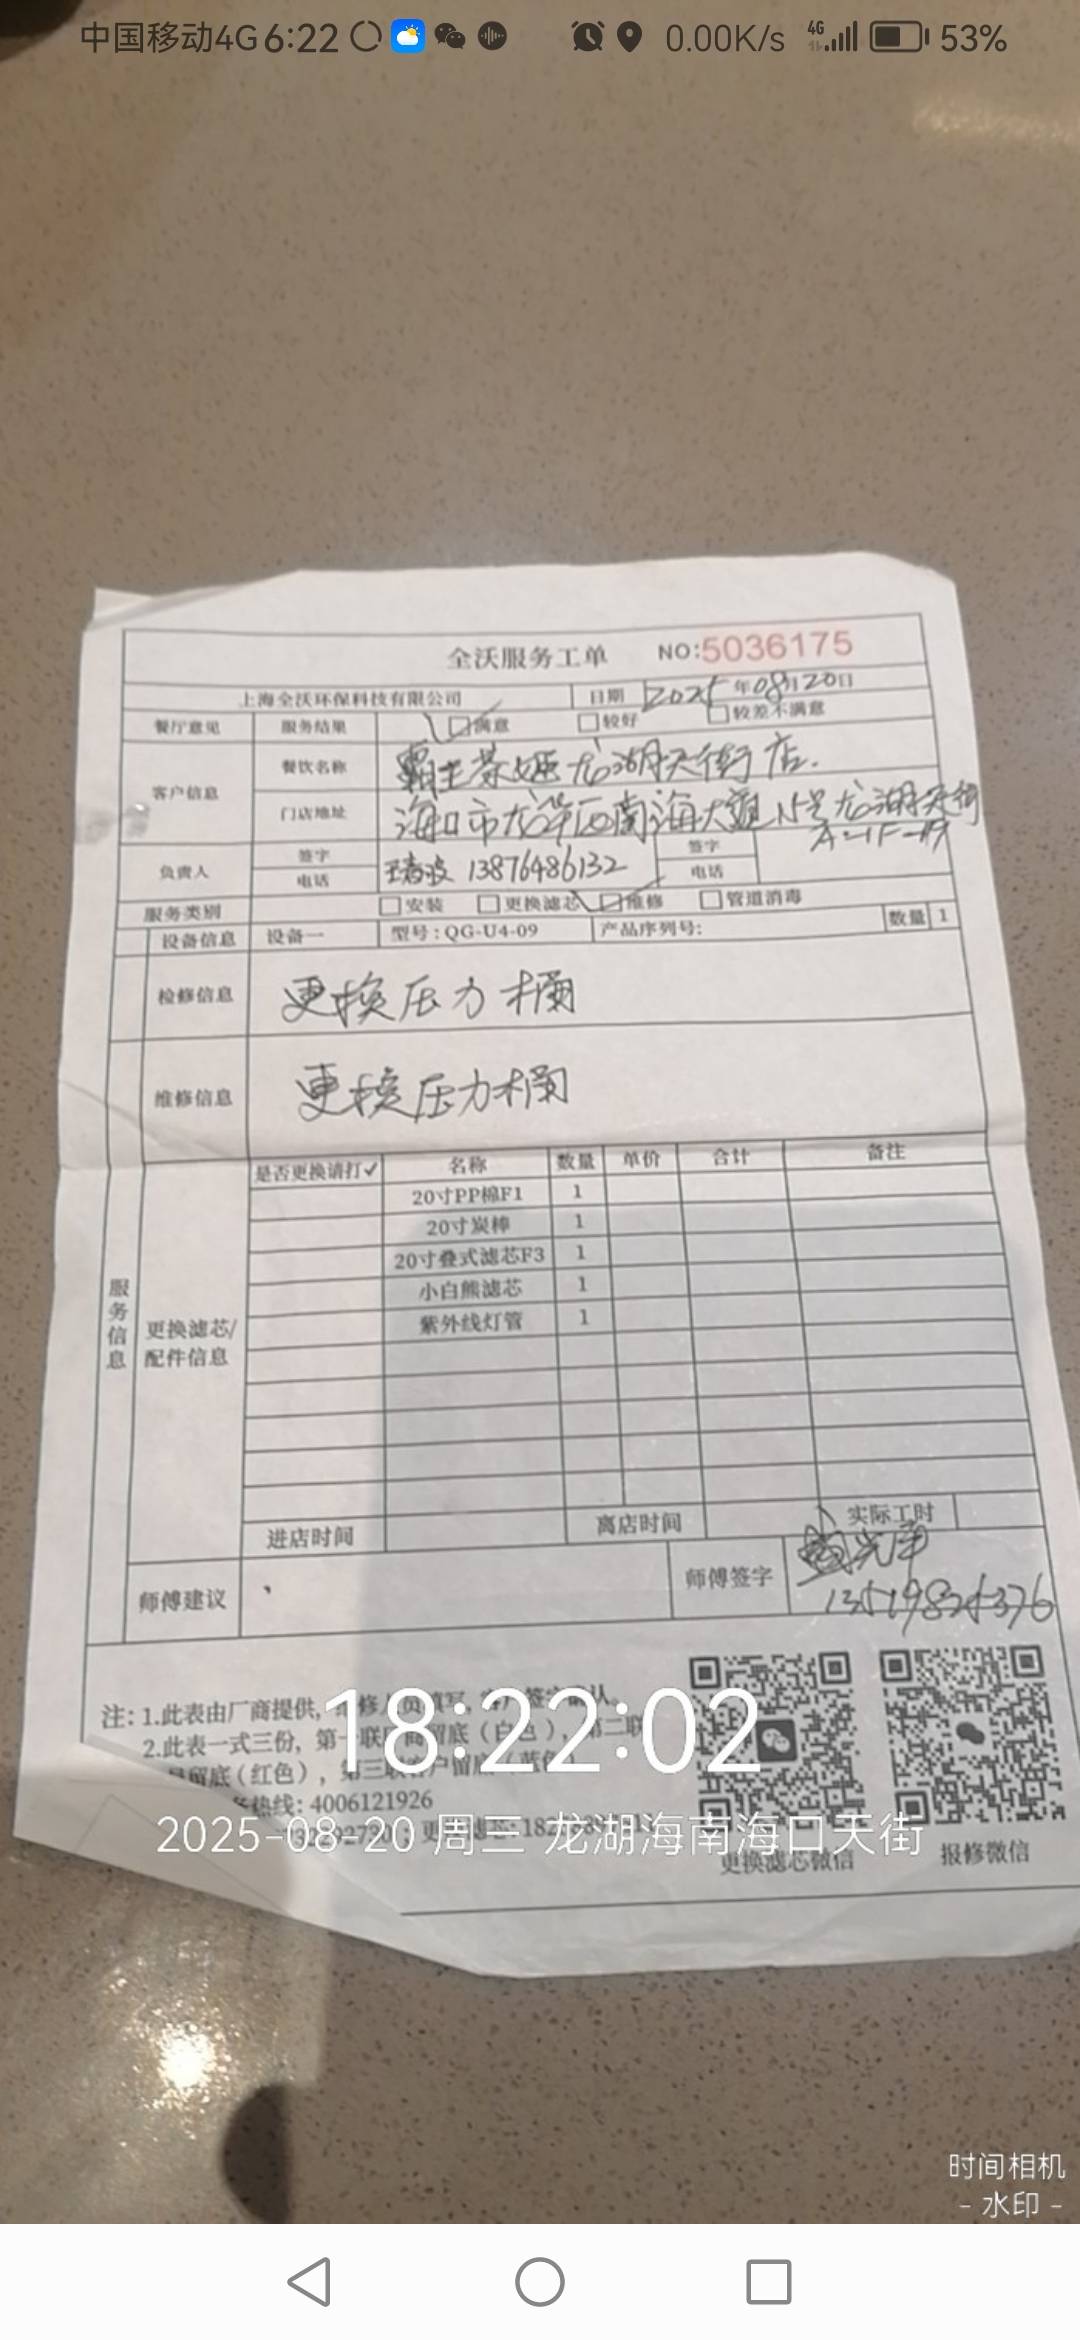 中国移动4G 6:22 0.00K/s 4G 53%
全沃服务工单 NO:5036175
上海全沃环保科技有限公司 日期 2025年08月20日
餐厅意见 服务结果 满意 较好 较差不满意
客户信息 餐饮名称 霸王茶姬龙湖天街店.
门店地址 海口市龙华区南海大道15号龙湖天街
负责人 签字 签字
电话 13876486132 电话
服务类别 安装 更换滤芯 维修 管道消毒
设备信息 设备一 型号:QG-U4-09 产品序列号: 数量 1
检修信息 更换压力桶
维修信息 更换压力桶
服务信息
更换滤芯/配件信息
是否更换请打✓ 名称 数量 单价 合计 备注
20寸PP棉F1 1
20寸炭棒 1
20寸叠式滤芯F3 1
小白熊滤芯 1
紫外线灯管 1
进店时间 离店时间 实际工时
师傅建议 师傅签字
注: 1.此表由厂商提供,
2.此表一式三份, 第一联 留底(白色), 第二联
留底(红色), 第三联客户留底(蓝色)
热线: 4006121926
18:22:02
2025-08-20 周三 龙湖海南海口天街
更换滤芯微信 报修微信
时间相机
- 水印 -